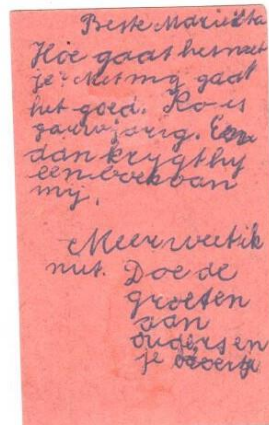 Beste Mariëtta
Hoe gaat het met
je. Met mij gaat
het goed. Ko is
jarig. En
dan krygt hy
een boek van
mij.
Meer weet ik
niet. Doe de
groeten
aan
ouders en
je